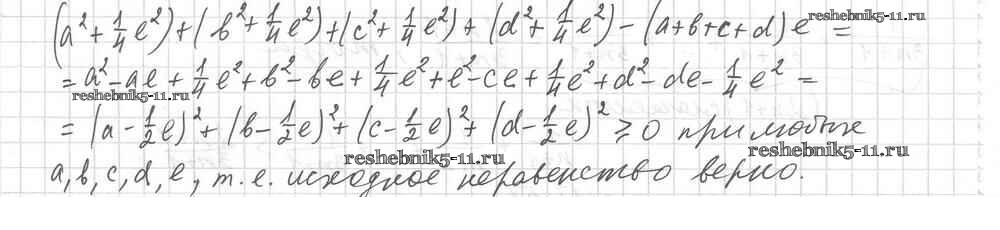 (a² + 1/4 e²) + (b² + 1/4 e²) + (c² + 1/4 e²) + (d² + 1/4 e²) - (a+b+c+d) e =
reshebnik5-11.ru
= a² - ae + 1/4 e² + b² - be + 1/4 e² + e² - ce + 1/4 e² + d² - de - 1/4 e² =
reshebnik5-11.ru
= (a - 1/2 e)² + (b - 1/2 e)² + (c - 1/2 e)² + (d - 1/2 e)² ⩾ 0 при любых
reshebnik5-11.ru
reshebnik5-11.ru
a, b, c, d, e, т.е. исходное неравенство верно.